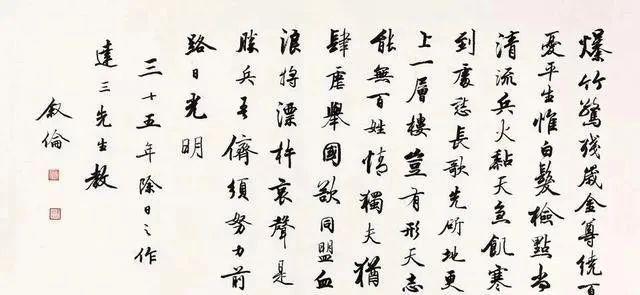 爆竹驚殘歲金尊繞百
憂平生惟白髮檢點尚
清流兵火黏天急飢寒
到處愁長歌先斫地更
上一層樓豈有形天志
能無百姓情獨夫猶
肆虐舉國欲同盟血
浪將漂杵哀聲是
勝兵吾儕須努力前
路日光明
三十五年除日之作
達三先生教
敘倫